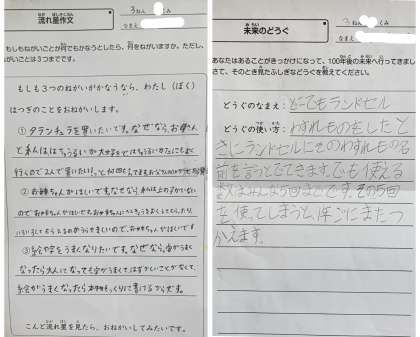 流れ星作文
3ねん
なまえ
もしもねがいごとが何でもかなうとしたら、何をねがいますか。ただし、
ねがいごとは3つまでです。
もしも3つのねがいがかなうなら、わたし(ぼく)
はつぎのことをおねがいします。
①タランチュラを買いたいです。なぜなら、お母さん
②お姉ちゃんがほしいです。なぜなら私は上の子がいない
ので
③絵や字をうまくなりたいです。なぜなら、字がうまく
なったら大人になっても字がうまくてはずかしいことがなくて、
絵がうまくなったら本物そっくりに書けるからです。
こんど流れ星を見たら、おねがいしてみたいです。
未来のどうぐ
3ねん
なまえ
あなたはあることがきっかけになって、100年後の未来へ行ってきまし
た。そのとき見たふしぎなどうぐを教えてください。
どうぐのなまえ:どこでもランドセル
どうぐの使い方:わすれものをしたと
きにランドセルにそのわすれものの名
前を言うとでてきます。でも使える
数は5回までです。その5回
を使ってしまうと、1年ごにまたつ
かえます。